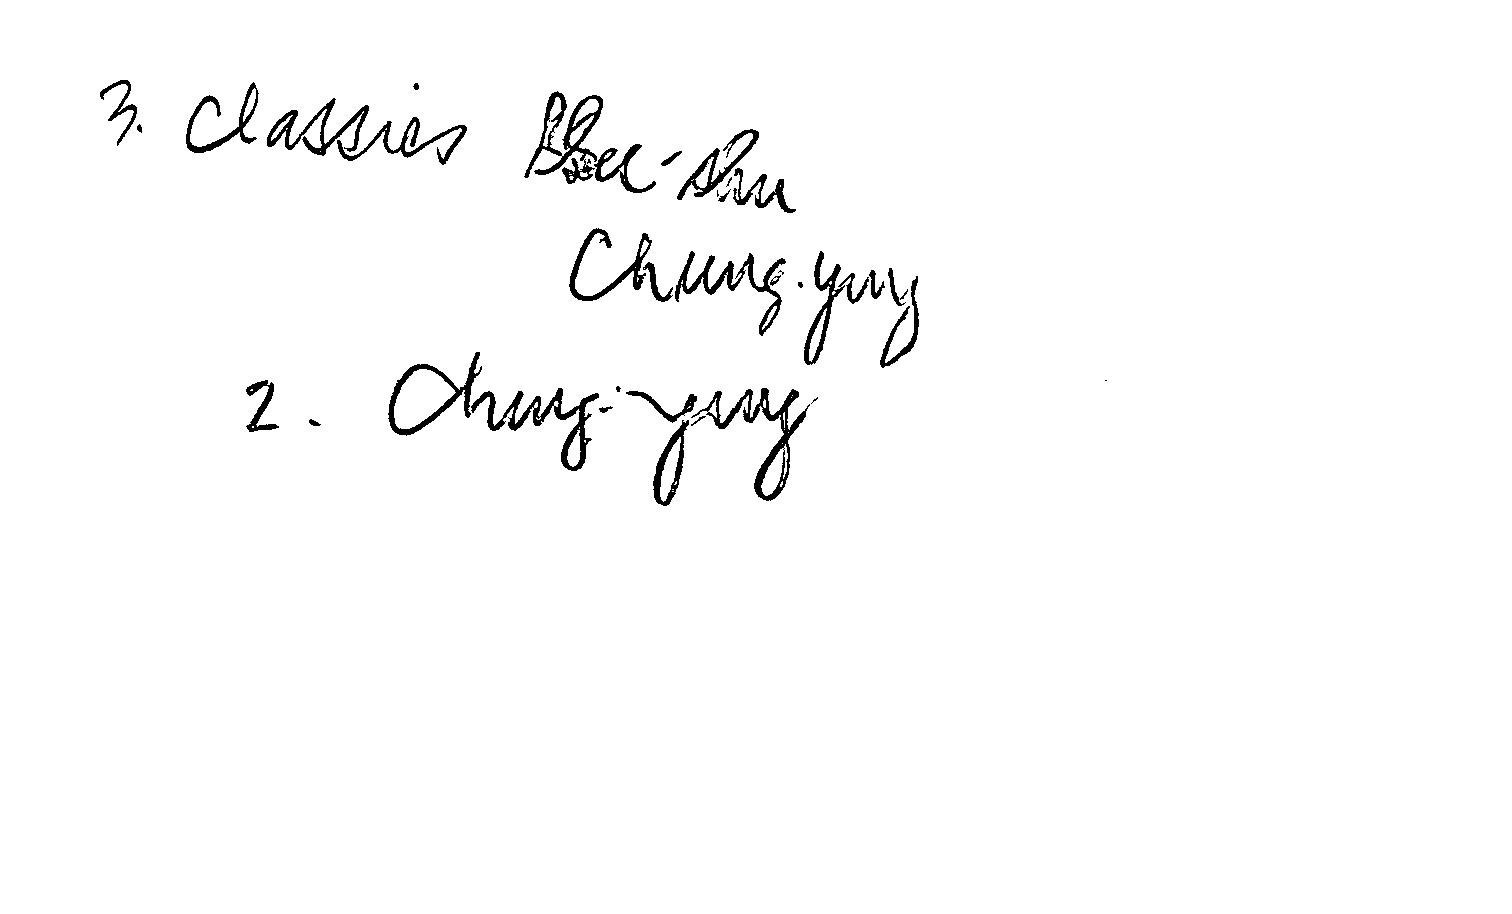 3. Classics Ssu-shu
Chung-yung
2. Chung-yung